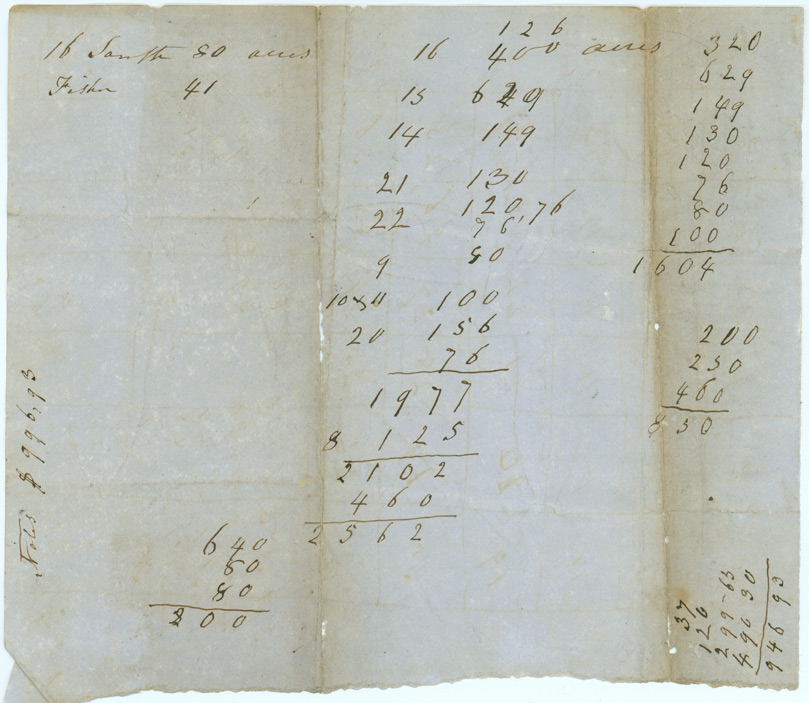 16 South 80 acres
41
126
16 400 acres
15 629
14 149
21 130
22 120,76
76
9 80
10 & 11 100
20 156
76
1977
8 125
2102
460
2562
320
629
149
130
120
76
80
100
1604
200
230
460
830
640
80
80
800
Notes $996,93
37
120
299-63
490 30
946 93